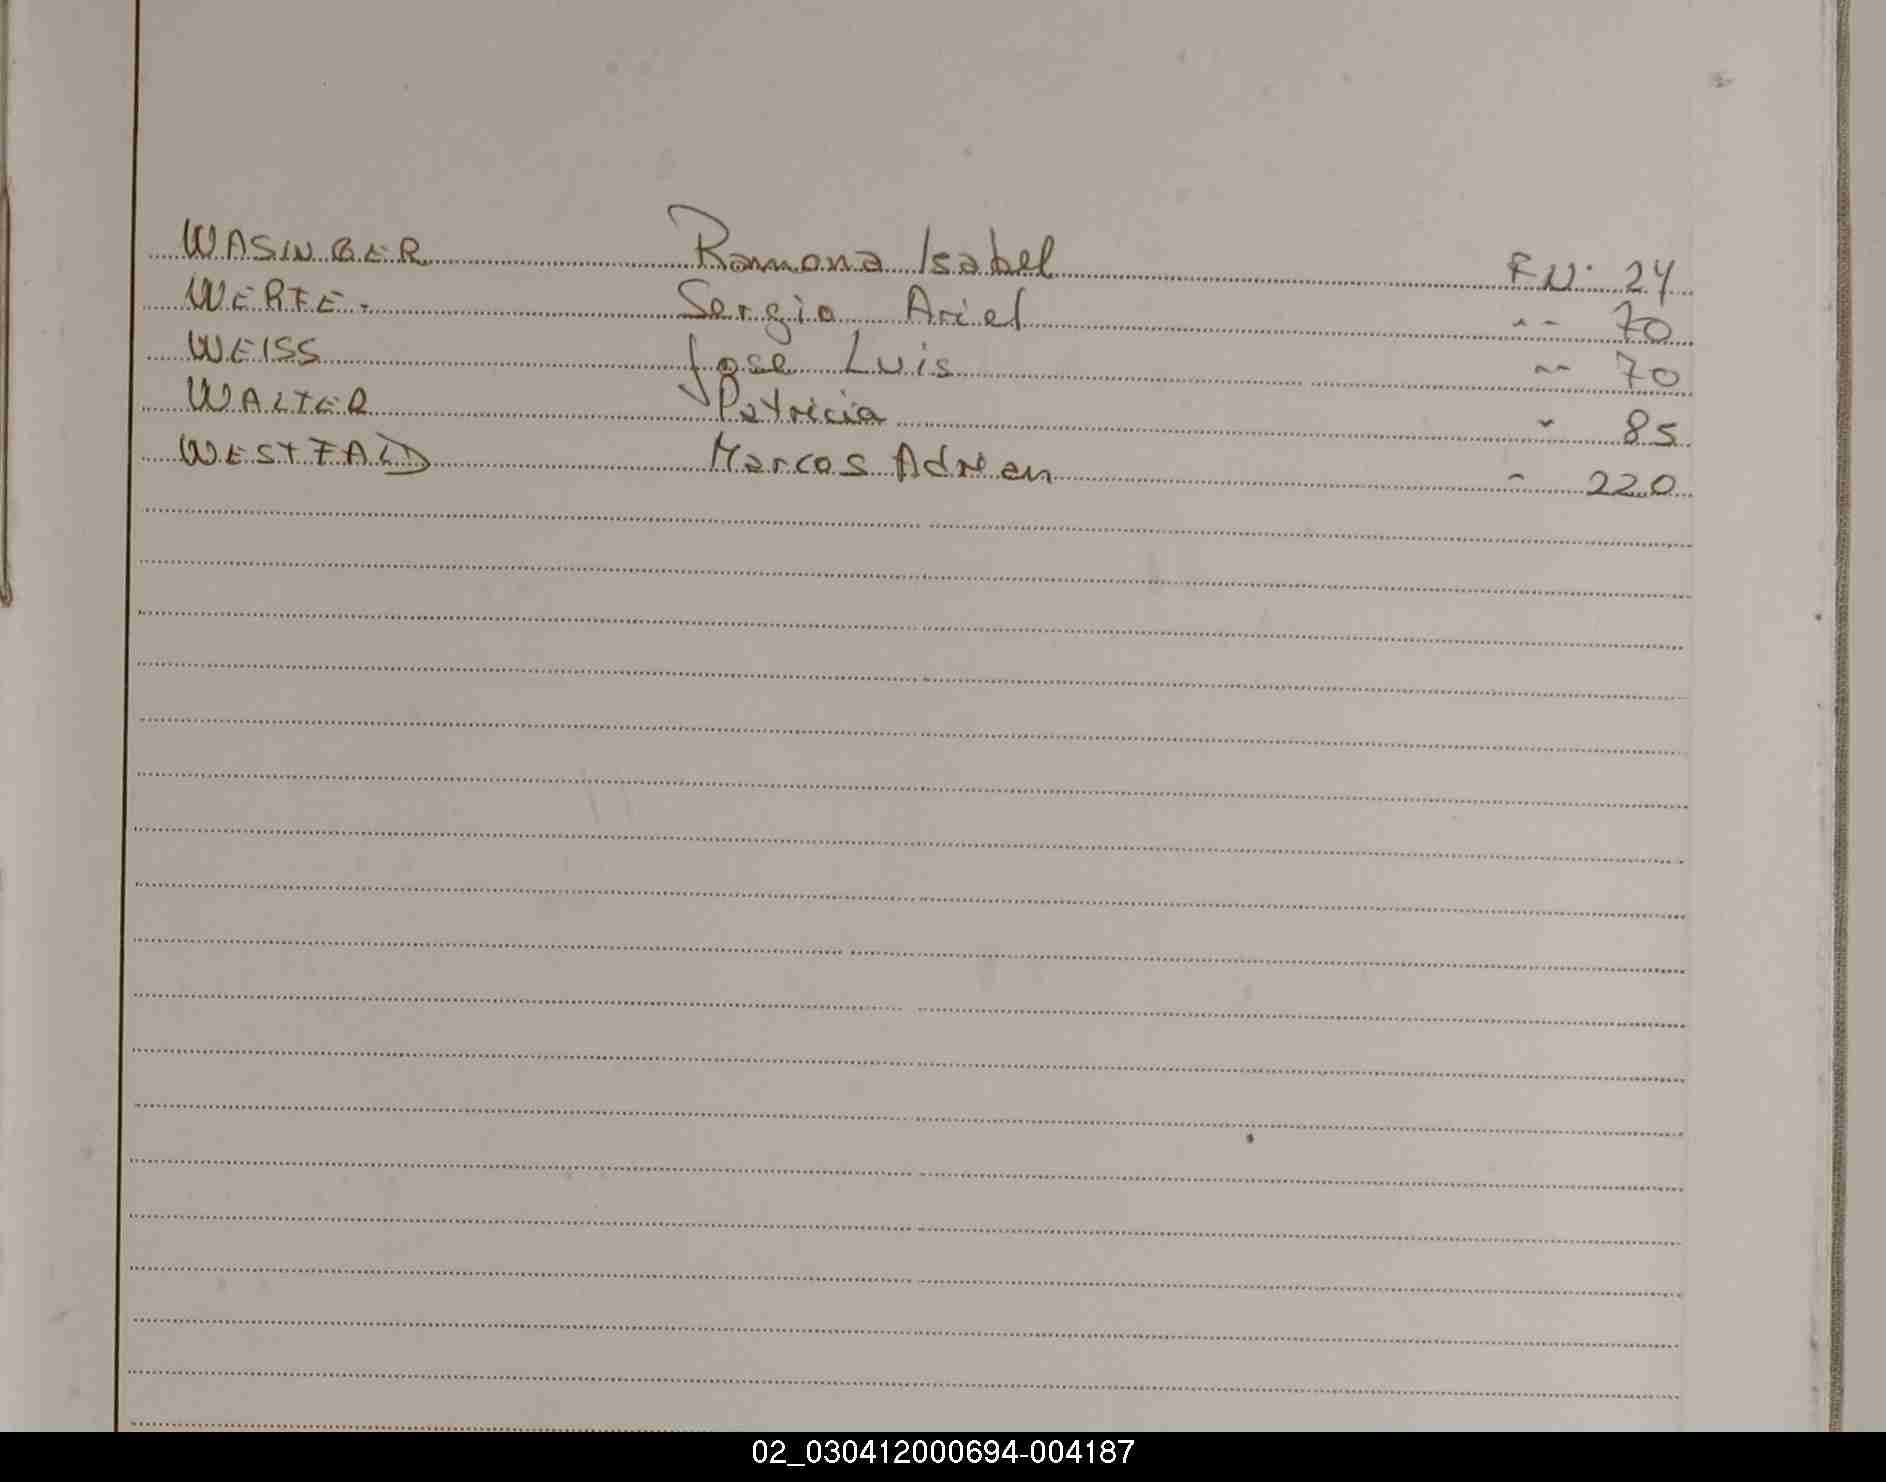 WASINGER Ramona Isabel F N: 24
WERFE. Sergio Ariel " 70
WEISS Jose Luis " 70
WALTER Patricia " 85
WESTFALD Marcos Adrien " 220
02_030412000694-004187